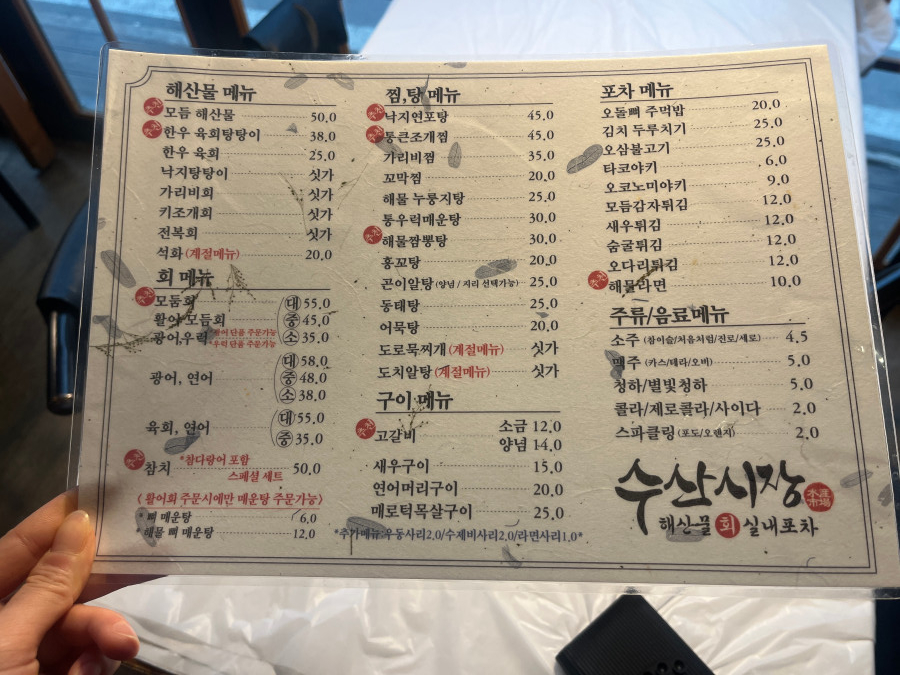 해산물 메뉴
추천 모듬 해산물 50,0
추천 한우 육회탕탕이 38.0
한우 육회 25.0
낙지탕탕이 싯가
가리비회 싯가
키조개회 싯가
전복회 싯가
석화 (계절메뉴) 20,0
회 메뉴
추천 모둠회 대 55.0
활어 모듬회 중 45,0
광어,우럭 소 35,0
*광어 단품 주문가능
*우럭 단품 주문가능
광어, 연어 대 58.0
중 48,0
소 38,0
육회, 연어 대 55.0
중 35,0
추천 참치 *참다랑어 포함 50,0
스페셜 세트
( 활어회 주문시에만 매운탕 주문가능)
* 뼈 매운탕 6,0
* 해물 뼈 매운탕 12,0
찜,탕 메뉴
추천 낙지연포탕 45,0
추천 통큰조개찜 45,0
가리비찜 35,0
꼬막찜 20,0
해물 누룽지탕 25.0
통우럭매운탕 30,0
추천 해물짬뽕탕 30,0
홍꼬탕 20,0
곤이알탕 (양념 / 지리 선택가능) 25,0
동태탕 25,0
어묵탕 20,0
도로묵찌개 (계절메뉴) 싯가
도치알탕 (계절메뉴) 싯가
구이 메뉴
추천 고갈비 소금 12,0
양념 14,0
새우구이 15,0
연어머리구이 20,0
메로턱목살구이 25,0
*추가메뉴 우동사리2,0/수제비사리2,0/라면사리1.0*
포차 메뉴
오돌뼈 주먹밥 20,0
김치 두루치기 25,0
오삼불고기 25,0
타코야키 6,0
오코노미야키 9,0
모듬감자튀김 12,0
새우튀김 12,0
숨굴튀김 12,0
오다리튀김 12,0
추천 해물라면 10,0
주류/음료메뉴
소주 (참이슬/처음처럼/진로/새로) 4,5
맥주 (카스/테라/오비) 5,0
청하/별빛청하 5,0
콜라/제로콜라/사이다 2,0
스파클링 (포도/오렌지) 2,0
수산시장 水産市場
해산물 회 실내포차